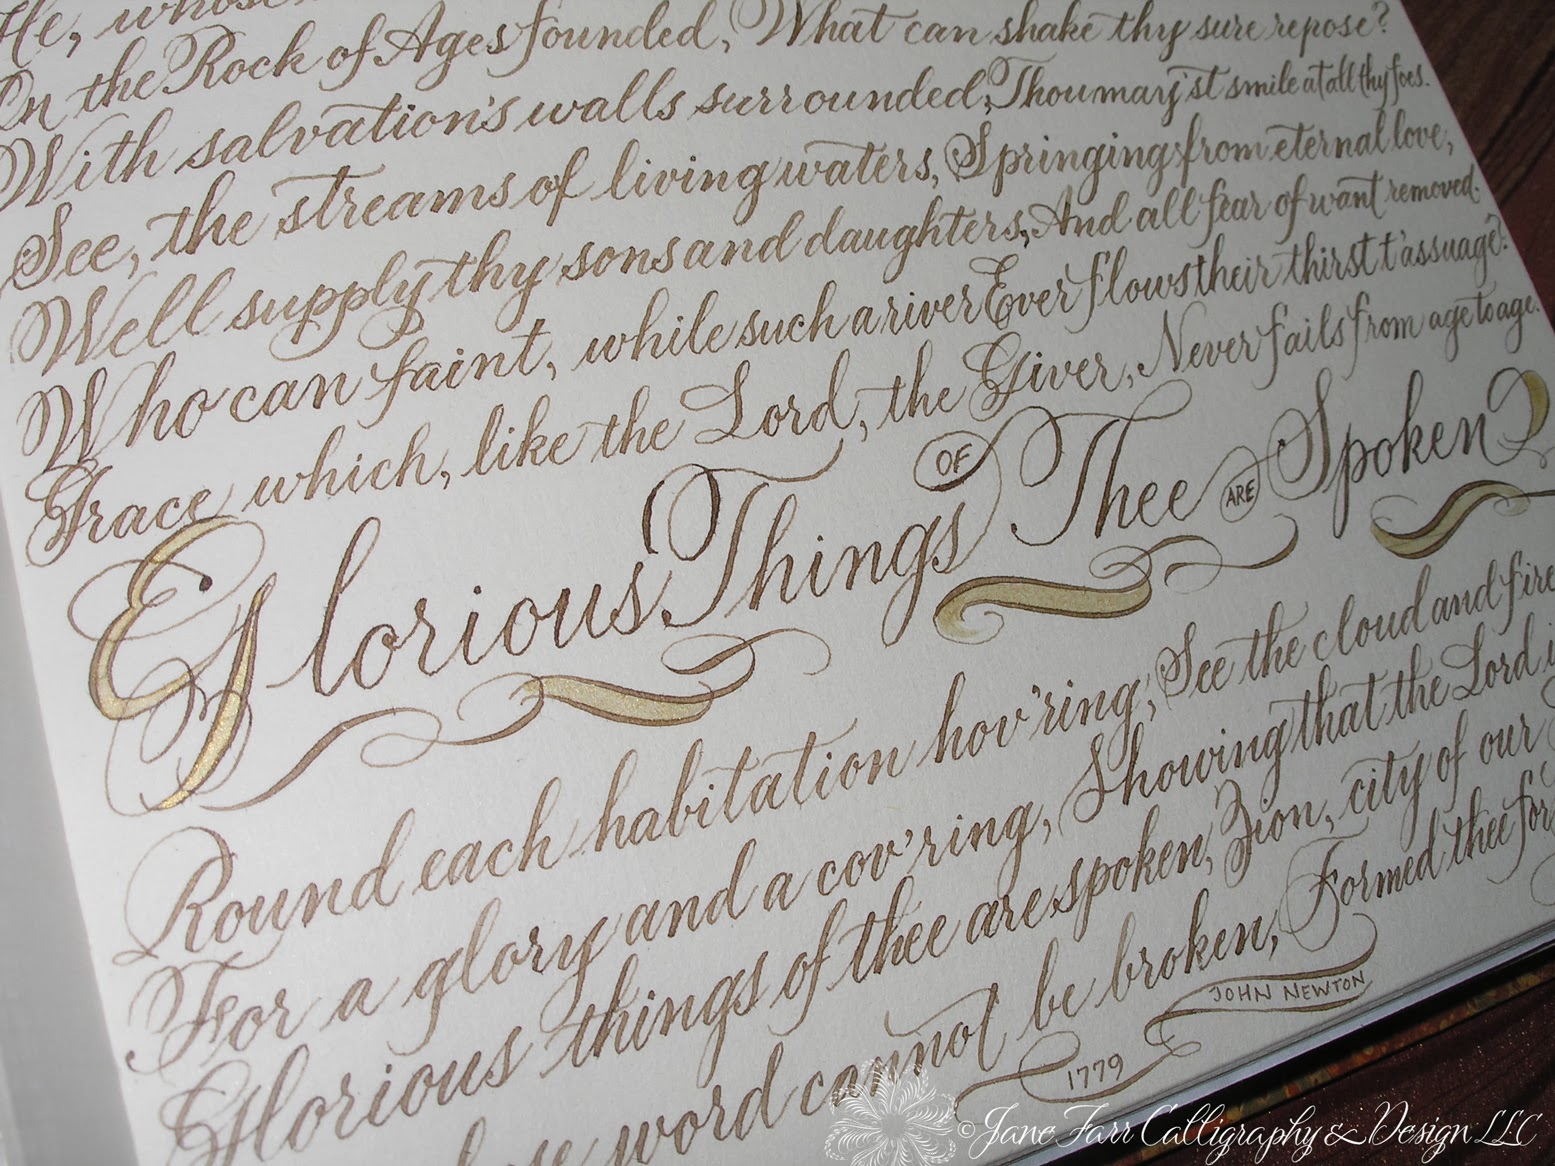 He, whose
On the Rock of Ages founded, What can shake thy sure repose?
With salvation's walls surrounded, Thou may'st smile at all thy foes.
See, the streams of living waters, Springing from eternal love,
Well supply thy sons and daughters, And all fear of want removed.
Who can faint, while such a river Ever flows their thirst t'assuage?
Grace which, like the Lord, the Giver, Never fails from age to age.
Glorious Things OF Thee ARE Spoken
Round each habitation hov'ring, See the cloud and fire
For a glory and a cov'ring, Showing that the Lord i
Glorious things of thee are spoken, Zion, city of our
word cannot be broken, Formed thee for
JOHN NEWTON
1779
© Jane Farr Calligraphy & Design LLC